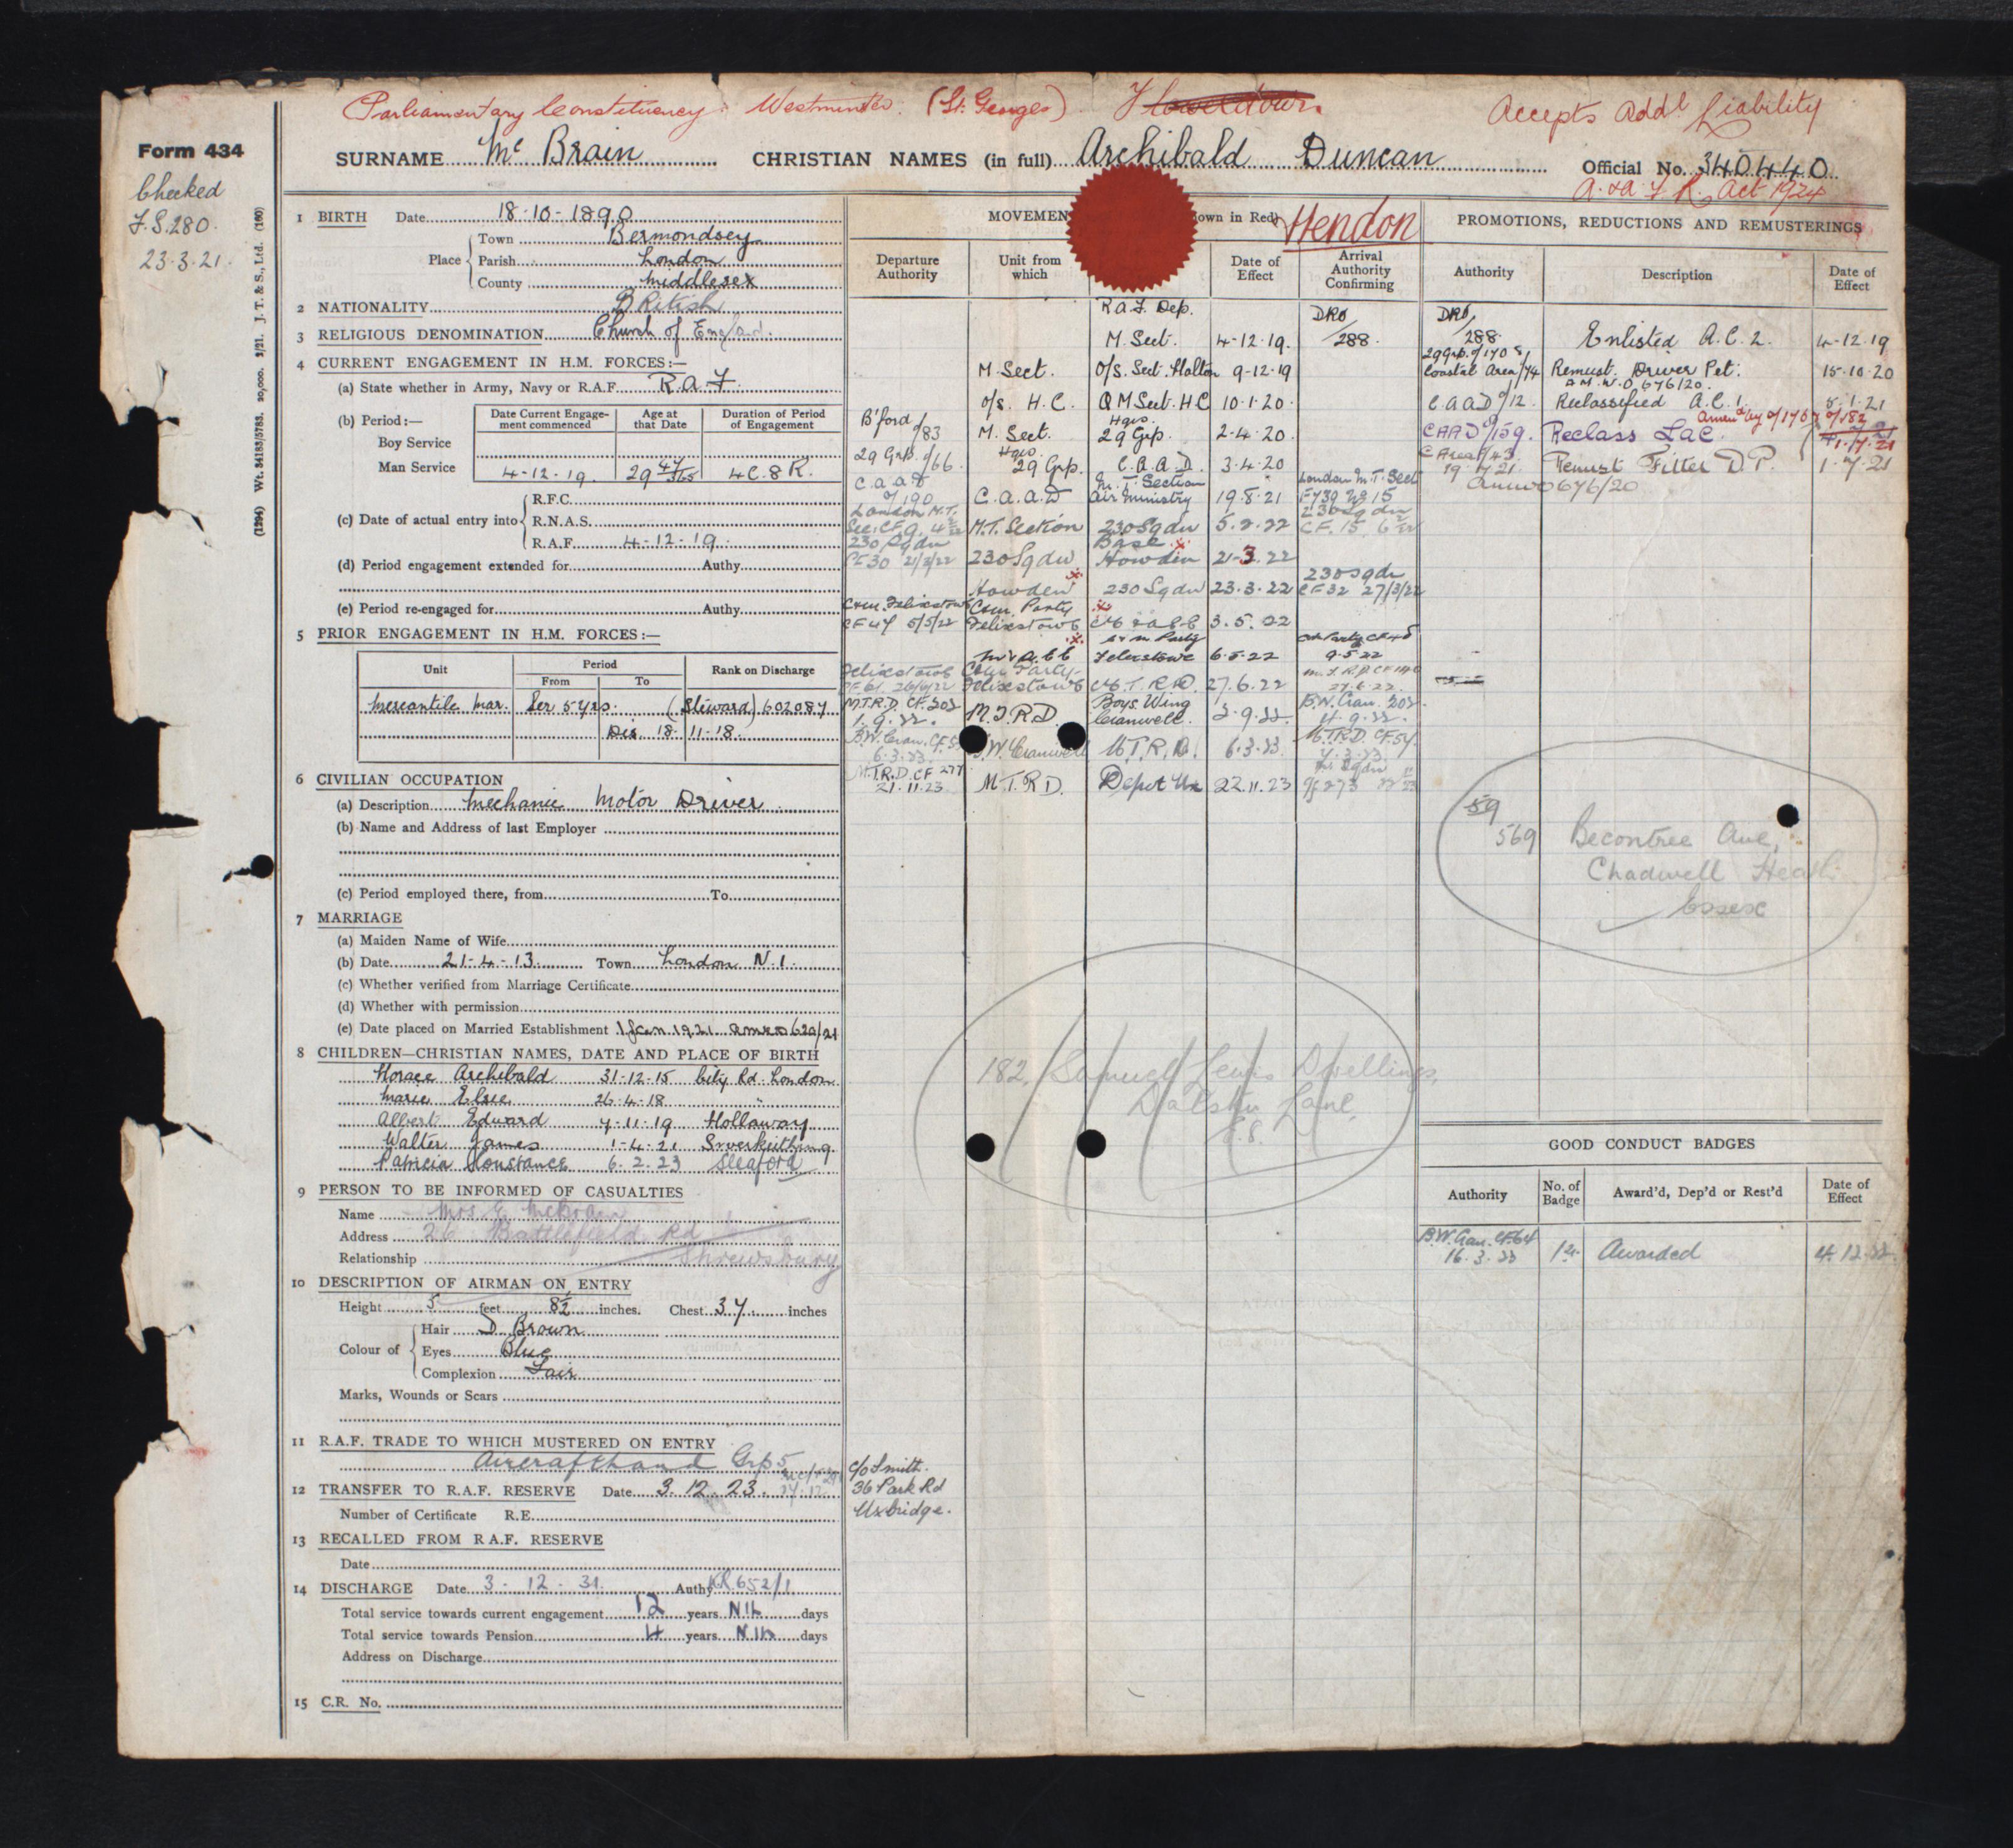 Parliamentary Constituency: Westminster. (St. Georges)
Accepts Addl Liability
Form 434
Checked
F.S.280.
23.3.21.
(1294) Wt. 34183/5783. 20,000. 2/21. J. T. & S., Ltd. (160)
SURNAME Mc Brain CHRISTIAN NAMES (in full) Archibald Duncan Official No. 340440
A. & A. F. R. Act 1924
1 BIRTH Date 18-10-1890
Place Town Bermondsey
Parish London
County Middlesex
2 NATIONALITY British
3 RELIGIOUS DENOMINATION Church of England.
4 CURRENT ENGAGEMENT IN H.M. FORCES:—
(a) State whether in Army, Navy or R.A.F. R.A.F.
(b) Period:— Date Current Engagement commenced Age at that Date Duration of Period of Engagement
Boy Service
Man Service 4-12-19. 29 47/365 4C.8R.
(c) Date of actual entry into R.F.C.
R.N.A.S.
R.A.F. 4-12-19.
(d) Period engagement extended for Authy.
(e) Period re-engaged for Authy.
5 PRIOR ENGAGEMENT IN H.M. FORCES:—
Unit Period From To Rank on Discharge
Mercantile Mar. Ser 5 yrs. (Steward) 602087
Dis. 18. 11-18.
6 CIVILIAN OCCUPATION
(a) Description Mechanic Motor Driver
(b) Name and Address of last Employer
(c) Period employed there, from To
7 MARRIAGE
(a) Maiden Name of Wife
(b) Date 21-4-13. Town London N.1.
(c) Whether verified from Marriage Certificate
(d) Whether with permission
(e) Date placed on Married Establishment 1 Jan 1921 AMWO 620/21
8 CHILDREN—CHRISTIAN NAMES, DATE AND PLACE OF BIRTH
Horace Archibald 31-12-15 City Rd. London
Marie Elsie 26.4.18 "
Albert Edward 7-11-19 Hollaway
Walter James 1-4-21
Patricia Constance 6.2.23 Sleaford
9 PERSON TO BE INFORMED OF CASUALTIES
Name Mrs E. McBrain
Address 26 Battlefield Rd
Relationship Shrewsbury
10 DESCRIPTION OF AIRMAN ON ENTRY
Height 5 feet 8½ inches. Chest 37 inches
Colour of Hair D Brown
Eyes Blue
Complexion Fair
Marks, Wounds or Scars
11 R.A.F. TRADE TO WHICH MUSTERED ON ENTRY
Aircrafthand Grp 5
12 TRANSFER TO R.A.F. RESERVE Date 3.12.23.
Number of Certificate R.E.
13 RECALLED FROM R.A.F. RESERVE
Date
14 DISCHARGE Date 3-12-31. Authy KR 652/1
Total service towards current engagement 12 years NIL days
Total service towards Pension 4 years NIL days
Address on Discharge
15 C.R. No.
MOVEMEN own in Red) Hendon
Departure Authority Unit from which Date of Effect Arrival Authority Confirming
R.A.F. Dep.
M. Sect. 4-12-19. DRO/288.
M Sect. O/S. Sect. Halton 9-12-19
O/S. H.C. QM Sect. H.C 10.1.20.
B'ford /83 M. Sect. Hqrs. 29 Grp. 2.4.20.
29 Grp. /66. Hqrs 29 Grp. C.A.A.D. 3.4.20
C.A.A.D /190 C.A.A.D M.T. Section Air Ministry 19.8.21 London M.T. Sect
London M.T. M.T. Section 230 Sqdn 5.2.22 230 Sqdn CF. 15
230 Sqdn CF30 21/3/22 230 Sqdn Base Howden 21-3.22
Howden 230 Sqdn 23.3.22 230 Sqdn CF32 27/3/22
Com. Felixstowe CF47 5/5/22 Com. Party Felixstowe 3.5.22
Felixstowe 6.5.22 9.5.22
Felixstowe Com. Party Felixstowe M.T.R.D. 27.6.22
M.T.R.D. CF.202 1.9.22. M.T.R.D. Boys Wing Cranwell. 2.9.22. B.W. Cran. 202 4.9.22.
B.W. Cran. CF.5 6.3.23 B.W. Cranwell M.T.R.D. 6.3.23 M.T.R.D. CF.54. 7.3.23.
M.T.R.D. CF 277 21.11.23 M.T.R.D. Depot Ux 22.11.23
c/o Smith.
36 Park Rd
Uxbridge.
182, Samuel Lewis Dwellings,
Dalston Lane,
E.8.
PROMOTIONS, REDUCTIONS AND REMUSTERINGS
Authority Description Date of Effect
DRO/288. Enlisted A.C.2. 4.12.19
29 Grp. Coastal Area/74 Remust. Driver Pet. 15.10.20
A.M.W.O 676/20.
C.A.A.D /12. Reclassified A.C.1.
CAAD /159. Reclass LAC.
C Area/43. 19.7.21. Remust Fitter D.P. 1.7.21
AMWO 676/20
59
569 Becontree Ave,
Chadwell Heath
Essex
GOOD CONDUCT BADGES
Authority No. of Badge Award'd, Dep'd or Rest'd Date of Effect
B.W. Cran. CF.64 16.3.23 1st. Awarded 4.12.22.